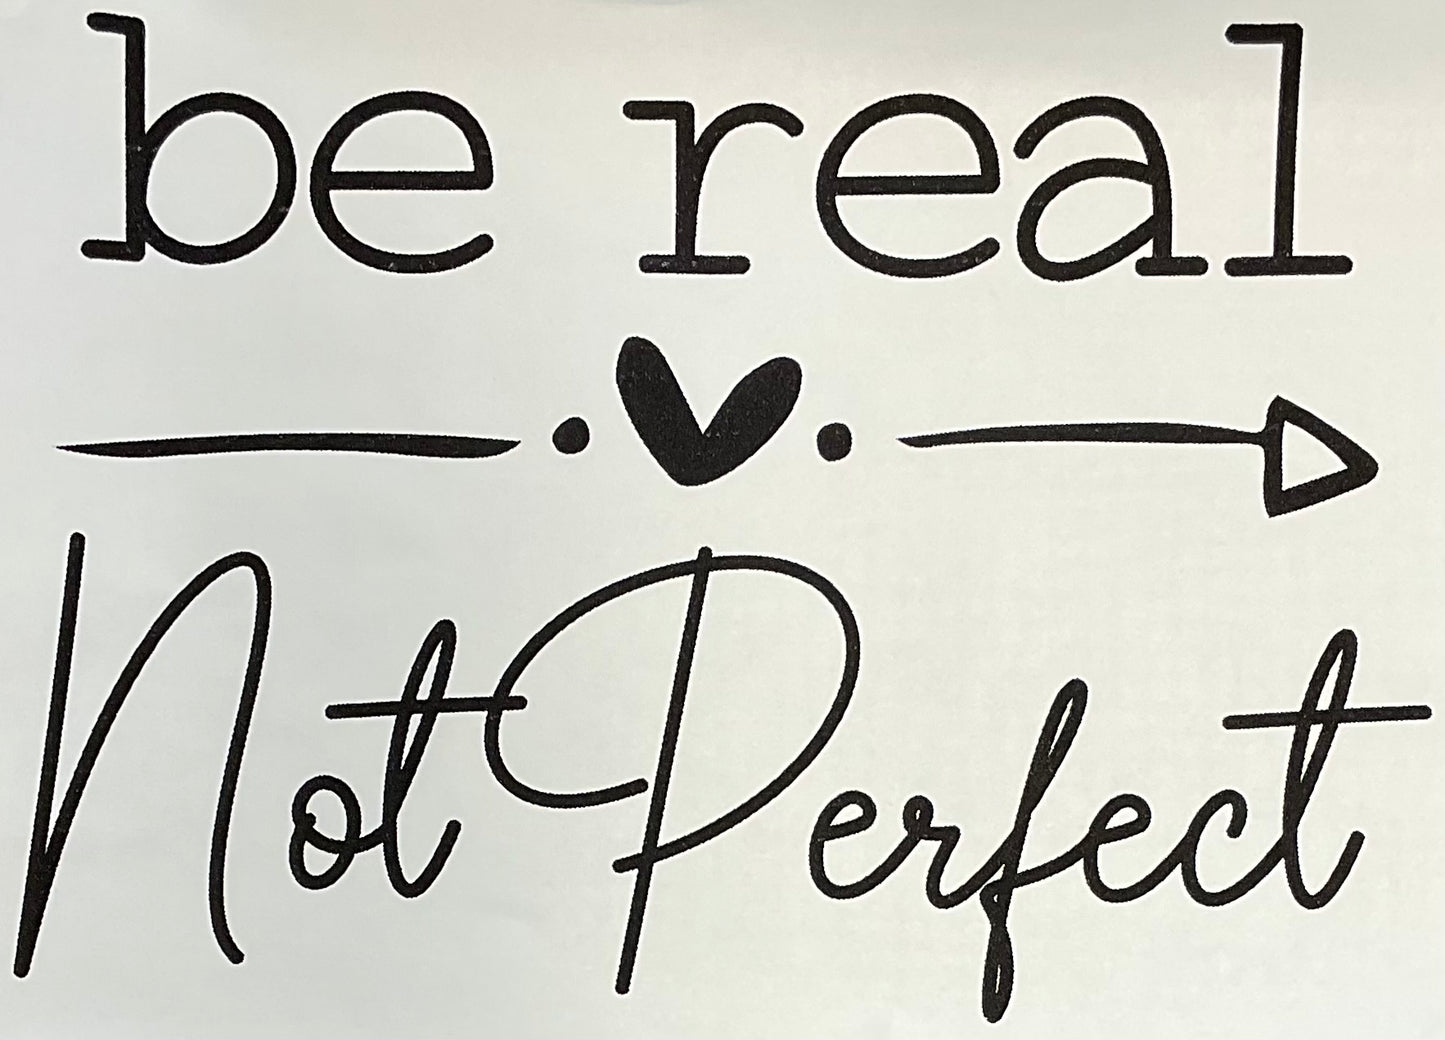 be real
Not Perfect